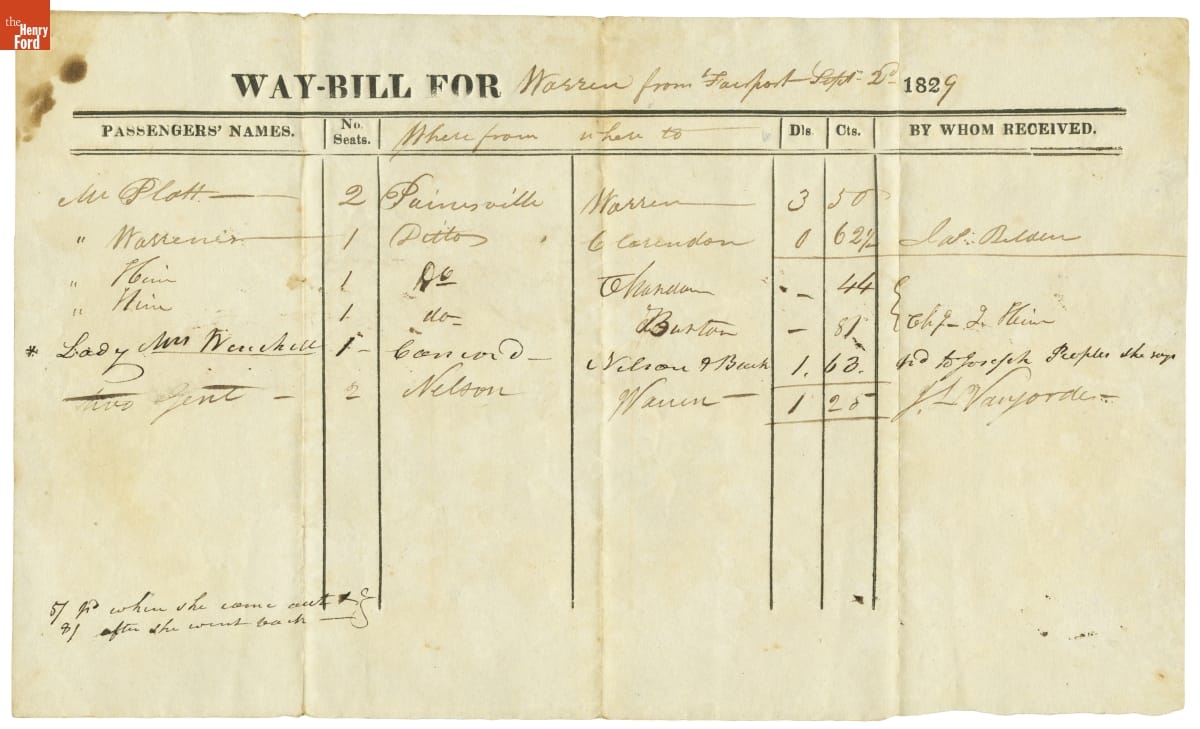 the Henry Ford
WAY-BILL FOR Warren from Fairport Sept. 2d 1829
PASSENGERS' NAMES. No. Seats. Where from where to Dls. Cts. BY WHOM RECEIVED.
Mr Platt 2 Painesville Warren 3 50
" Warrener 1 Ditto Clarendon 0 62½ Jas. Belden
" Hine 1 Do Chardon - 44
" Hine 1 do- Burton - 81
* Lady Mrs 1- Concord- Nelson & Back 1. 63. pd to Joseph Peeples she says
two Gent - 2 Nelson Warren 1 25
pd when she came out &
81 after she went back